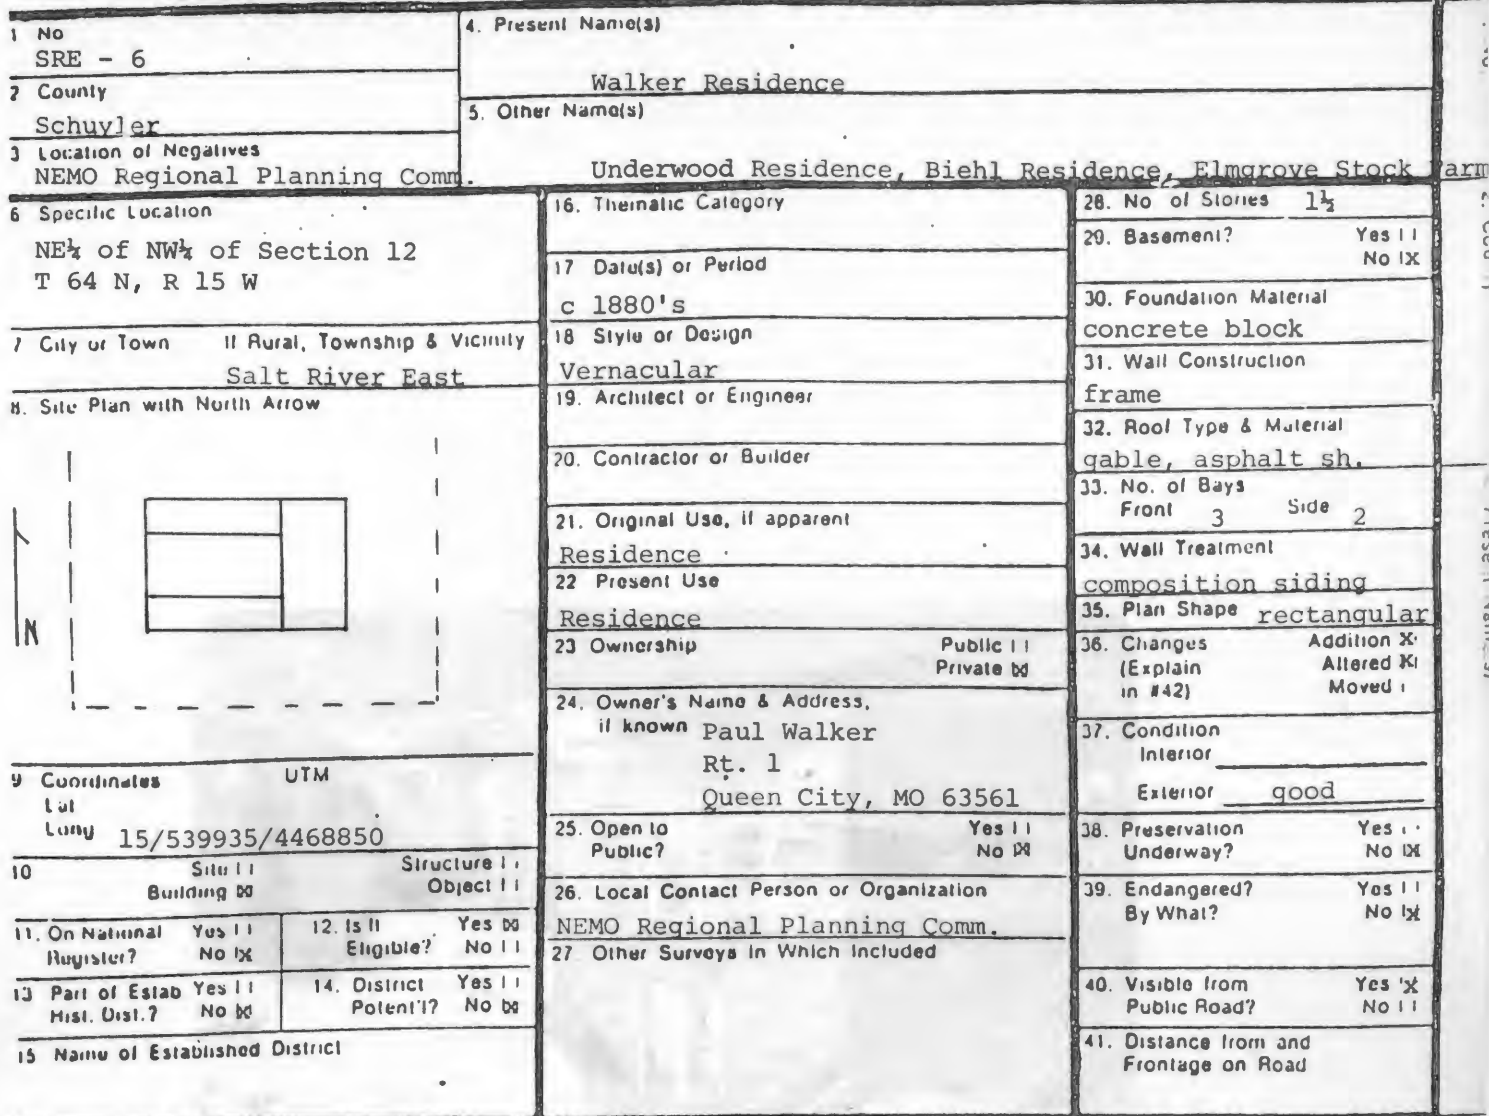 1 No
SRE - 6
2 County
Schuyler
3 Location of Negatives
NEMO Regional Planning Comm.
4. Present Name(s)
Walker Residence
5. Other Name(s)
Underwood Residence, Biehl Residence, Elmgrove Stock Farm
6 Specific Location
NE¼ of NW¼ of Section 12
T 64 N, R 15 W
7 City or Town If Rural, Township & Vicinity
Salt River East
8. Site Plan with North Arrow
N
9 Coordinates UTM
Lat
Long 15/539935/4468850
10 Site [ ] Structure [ ]
Building [X] Object [ ]
11. On National Yes [ ]
Register? No [X]
12. Is It Yes [X]
Eligible? No [ ]
13 Part of Estab Yes [ ]
Hist. Dist.? No [X]
14. District Yes [ ]
Potent'l? No [X]
15 Name of Established District
16. Thematic Category
17 Date(s) or Period
c 1880's
18 Style or Design
Vernacular
19. Architect or Engineer
20. Contractor or Builder
21. Original Use, if apparent
Residence
22 Present Use
Residence
23 Ownership Public [ ]
Private [X]
24. Owner's Name & Address,
if known Paul Walker
Rt. 1
Queen City, MO 63561
25. Open to Yes [ ]
Public? No [X]
26. Local Contact Person or Organization
NEMO Regional Planning Comm.
27 Other Surveys in Which Included
28. No of Stories 1½
29. Basement? Yes [ ]
No [X]
30. Foundation Material
concrete block
31. Wall Construction
frame
32. Roof Type & Material
gable, asphalt sh.
33. No. of Bays
Front 3 Side 2
34. Wall Treatment
composition siding
35. Plan Shape rectangular
36. Changes Addition [X]
(Explain Altered [X]
in #42) Moved [ ]
37. Condition
Interior
Exterior good
38. Preservation Yes [ ]
Underway? No [X]
39. Endangered? Yes [ ]
By What? No [X]
40. Visible from Yes [X]
Public Road? No [ ]
41. Distance from and
Frontage on Road